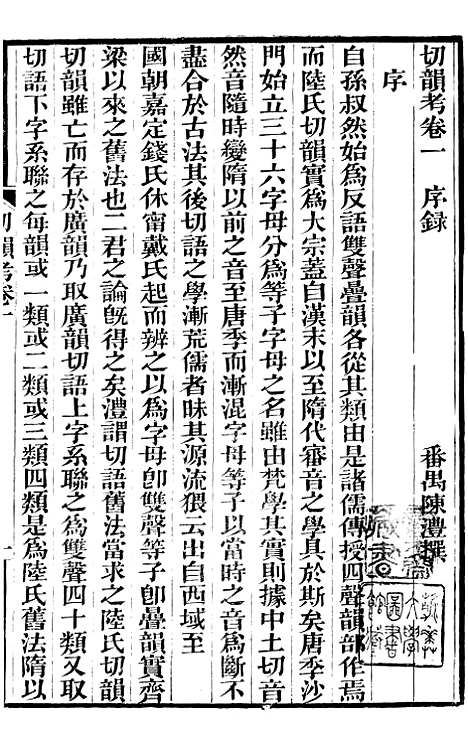 切韻考卷一　序録
番禺陳澧撰
序
自孫叔然始爲反語雙聲疊韻各從其類由是諸儒傳授四聲韻部作焉
而陸氏切韻實爲大宗蓋自漢末以至隋代審音之學具於斯矣唐季沙
門始立三十六字母分爲等子字母之名雖由梵學其實則據中土切音
然音隨時變隋以前之音至唐季而漸混字母等子以當時之音爲斷不
盡合於古法其後切語之學漸荒儒者昧其源流猥云出自西域至
國朝嘉定錢氏休甯戴氏起而辨之以爲字母卽雙聲等子卽疊韻實齊
梁以來之舊法也二君之論旣得之矣澧謂切語舊法當求之陸氏切韻
切韻雖亡而存於廣韻乃取廣韻切語上字系聯之爲雙聲四十類又取
切語下字系聯之每韻或一類或二類或三類四類是爲陸氏舊法隋以
切韻考卷一
一